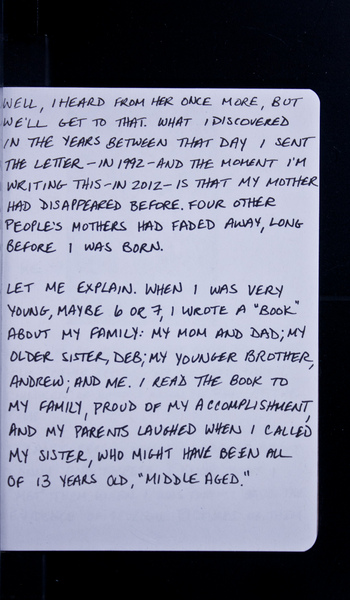 WELL, I HEARD FROM HER ONCE MORE, BUT
WE'LL GET TO THAT. WHAT I DISCOVERED
IN THE YEARS BETWEEN THAT DAY I SENT
THE LETTER - IN 1992 - AND THE MOMENT I'M
WRITING THIS - IN 2012 - IS THAT MY MOTHER
HAD DISAPPEARED BEFORE. FOUR OTHER
PEOPLE'S MOTHERS HAD FADED AWAY, LONG
BEFORE I WAS BORN.
LET ME EXPLAIN. WHEN I WAS VERY
YOUNG, MAYBE 6 OR 7, I WROTE A "BOOK"
ABOUT MY FAMILY: MY MOM AND DAD; MY
OLDER SISTER, DEB; MY YOUNGER BROTHER,
ANDREW; AND ME. I READ THE BOOK TO
MY FAMILY, PROUD OF MY ACCOMPLISHMENT,
AND MY PARENTS LAUGHED WHEN I CALLED
MY SISTER, WHO MIGHT HAVE BEEN ALL
OF 13 YEARS OLD, "MIDDLE AGED."